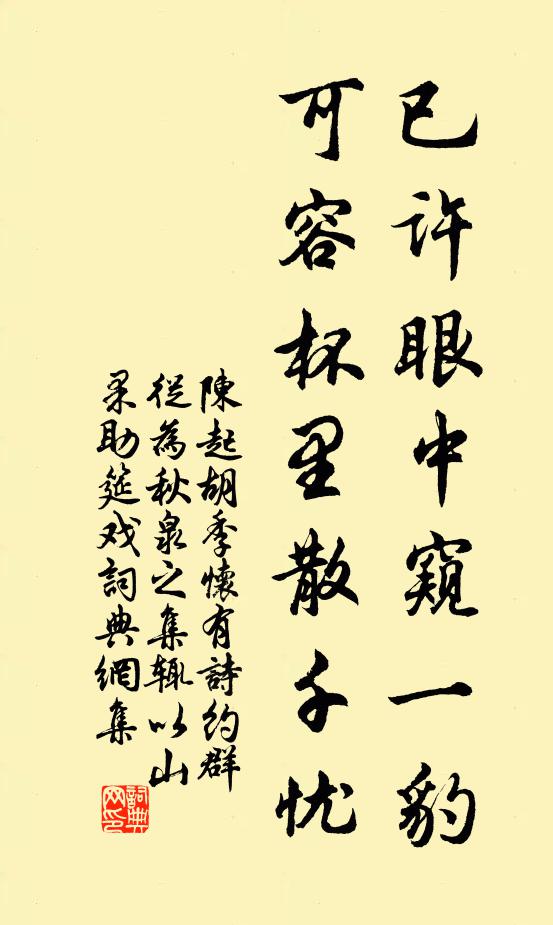 已许眼中窥一豹
可容杯里散千忧
陳起胡季懷有詩约群
從為秋泉之集辄以山
果助筵戏詞典網集
詞典网印